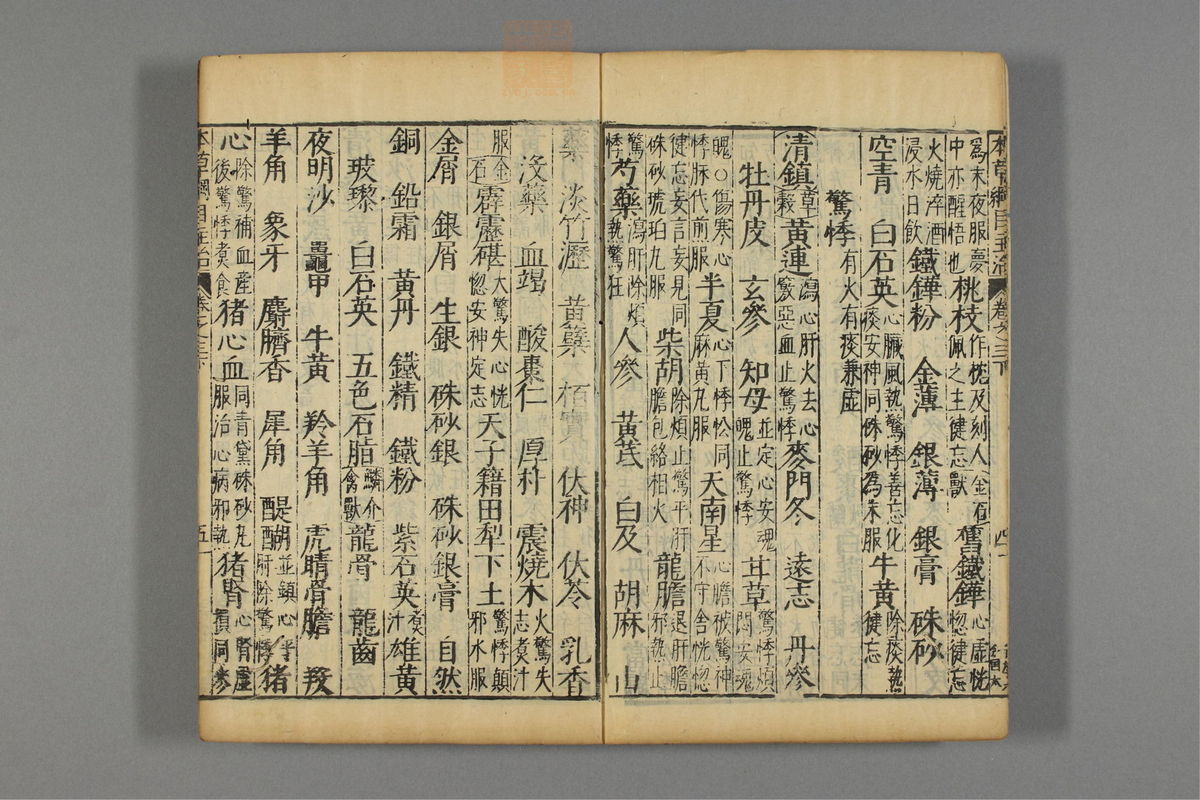 爲末夜服夢中亦醒悟也桃枝作枕及刻人佩之主健忘獸金石舊鐵鏵心虛恍惚健忘
火燒淬酒浸水日飲鐵鏵粉 金薄 銀薄 銀膏 硃砂
空青 白石英心臟風熱驚悸善忘化痰安神同硃砂爲末服牛黃除痰熱健忘
驚悸有火有痰兼虛
清鎮草穀黃連瀉心肝火去心竅惡血止驚悸麥門冬 遠志 丹參
牡丹皮 玄參 知母並定心安魂魄止驚悸甘草驚悸煩悶安魂
魄○傷寒心悸脉代煎服半夏心下悸忪同麻黃丸服天南星心膽被驚神不守舍恍惚
健忘妄言妄見同硃砂琥珀丸服柴胡除煩止驚平肝膽包絡相火龍膽退肝膽邪熱止
驚悸芍藥瀉肝除煩熱驚狂人參 黃芪 白及 胡麻 山
藥 淡竹瀝 黃藥 栢實 伏神 伏苓 乳香
沒藥 血竭 酸棗仁 厚朴 震燒木火驚失志煮汁
服金土石霹靂碪大驚失心恍惚安神定志天子籍田犁下土驚悸顛邪水服
金屑 銀屑 生銀 硃砂銀 硃砂銀膏 自然
銅 鉛霜 黃丹 鐵精 鐵粉 紫石英煮汁雄黃
玻瓈 白石英 五色石脂鱗介禽獸龍骨 龍齒
夜明沙 鼉甲 牛黃 羚羊角 虎睛骨膽 羖
羊角 象牙 麝臍香 犀角 醍醐並鎮心平肝除驚悸猪
心除驚補血產後驚悸煮食猪心血同青黛硃砂丸服治心病邪熱猪腎心腎虛損同參
本草綱目主治 卷之三下 五